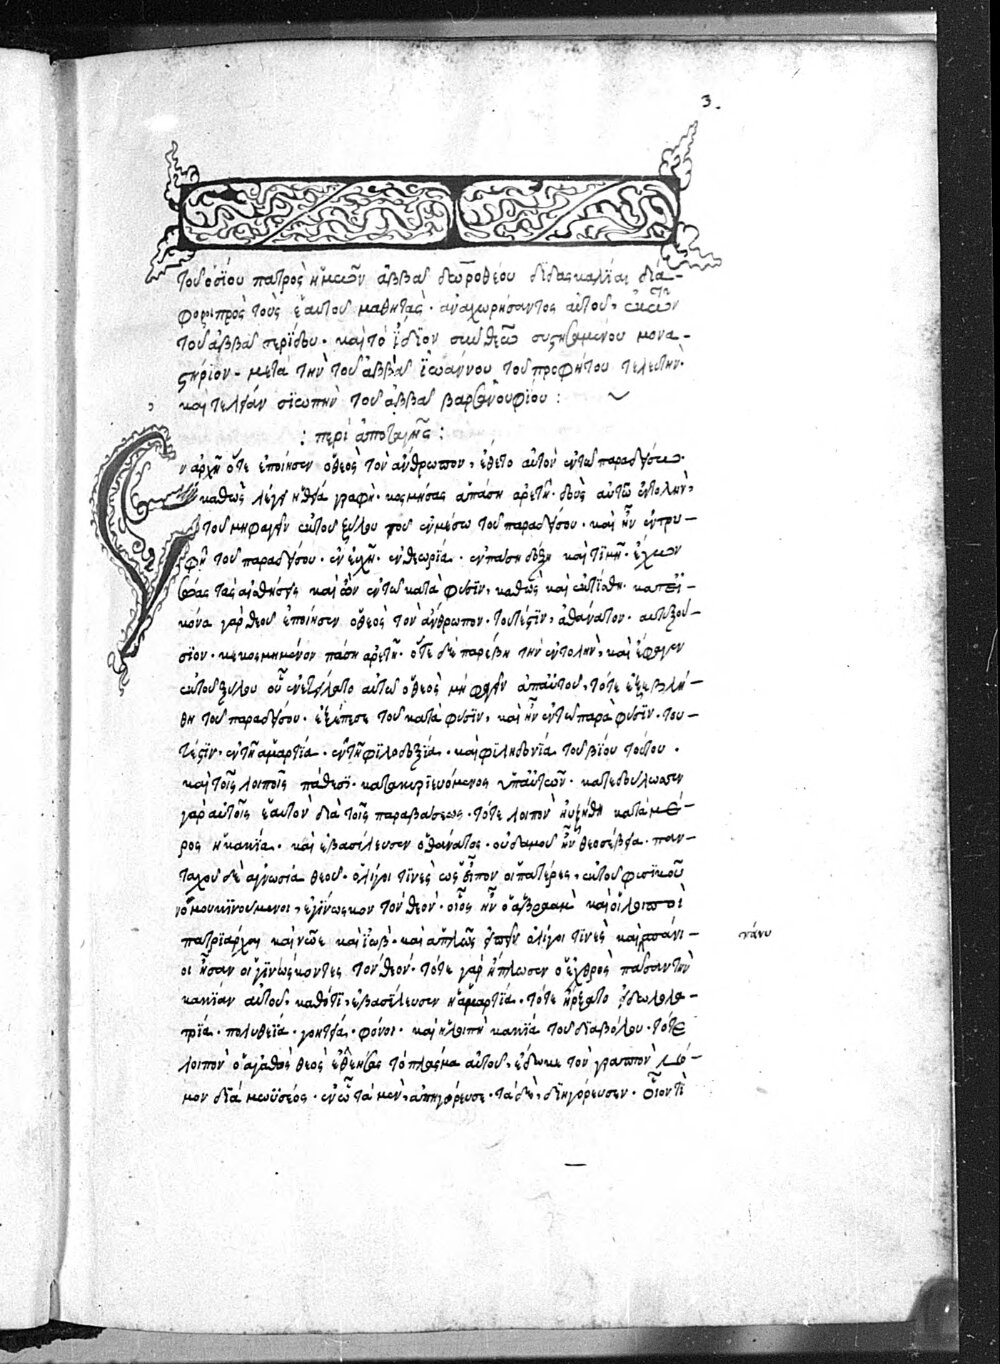 3.
τοῦ ὁσίου πατρὸς ἡμῶν ἀββᾶ δωροθέου διδασκαλίαι διά-
φοροι πρὸς τοὺς ἑαυτοῦ μαθητάς · ἀναχωρήσαντος αὐτοῦ, ἐκ τῶν
τοῦ ἀββᾶ σερίδου · καὶ τὸ ἴδιον σὺν θεῶ συστησαμένου μονα-
στήριον - μετὰ τὴν τοῦ ἀββᾶ ἰωάννου τοῦ προφήτου τελευτὴν·
καὶ τελείαν σιωπὴν τοῦ ἀββᾶ βαρσανουφίου :
: περὶ ἀποταγῆς :
Ἐν ἀρχῆ ὅτε ἐποίησεν ὁ θεὸς τὸν ἄνθρωπον, ἔθετο αὐτὸν ἐν τῶ παραδείσω·
καθὼς λέγει ἡ θεία γραφὴ· κοσμήσας ἁπάση ἀρετῆ· δοὺς αὐτῶ ἐντολὴν,
τοῦ μὴ φαγεῖν ἐκ τοῦ ξύλου τοῦ ἐν μέσω τοῦ παραδείσου · καὶ ἦν ἐν τρυ-
φῆ τοῦ παραδείσου · ἐν εὐχῆ· ἐν θεωρία · ἐν πάση δόξη καὶ τιμῆ· ἔχων
σώας τὰς αἰσθήσεις καὶ ὢν ἐν τῶ κατὰ φύσιν, καθὼς καὶ ἐκτίσθη· κατ' εἰ-
κόνα γὰρ θεοῦ ἐποίησεν ὁ θεὸς τὸν ἄνθρωπον· τουτέστιν, ἀθάνατον· αὐτεξού-
σιον· κεκοσμημένον πάση ἀρετῆ· ὅτε δὲ παρέβη τὴν ἐντολὴν, καὶ ἔφαγεν
ἐκ τοῦ ξύλου οὗ ἐνετείλατο αὐτῶ ὁ θεὸς μὴ φαγεῖν ἀπ' αὐτοῦ, τότε ἐξεβλή-
θη τοῦ παραδείσου · ἐξέπεσε τοῦ κατὰ φύσιν, καὶ ἦν ἐν τῶ παρὰ φύσιν· του-
τέστιν, ἐν τῆ ἁμαρτία · ἐν τῆ φιλοδοξία · καὶ φιληδονία τοῦ βίου τούτου ·
καὶ τοῖς λοιποῖς πάθεσι · κατακυριευόμενος ὑπ' αὐτῶν · κατεδούλωσεν
γὰρ αὐτοῖς ἑαυτὸν διὰ τοῖς παραβάσεως · τότε λοιπὸν ηὐξήθη κατὰ μέ-
ρος ἡ κακία · καὶ ἐβασίλευσεν ὁ θάνατος · οὐδαμοῦ ἦν θεοσέβεια · παν-
ταχοῦ δὲ ἀγνωσία θεοῦ · ὀλίγοι τινὲς ὡς εἶπον οἱ πατέρες, ἐκ τοῦ φυσικοῦ
νόμου κινούμενοι, ἐγίνωσκον τὸν θεόν · οἷος ἦν ὁ ἀβραὰμ καὶ οἱ λοιποὶ
πατριάρχαι καὶ νῶε καὶ ἰώβ · καὶ ἁπλῶς εἰπεῖν ὀλίγοι τινὲς καὶ σπάνι-
πάνυ
οι ἦσαν οἱ γινώσκοντες τὸν θεόν · τότε γὰρ ἥπλωσεν ὁ ἐχθρὸς πᾶσαν τὴν
κακίαν αὐτοῦ · καθότι, ἐβασίλευσεν ἡ ἁμαρτία · τότε ἤρξατο εἰδωλολα-
τρία · πολυθεΐα · γοητεία · φόνοι · καὶ ἡ λοιπὴ κακία τοῦ διαβόλου · τότε
λοιπὸν ὁ ἀγαθὸς θεὸς ἐλεήσας τὸ πλάσμα αὐτοῦ, ἔδωκε τὸν γραπτὸν νό-
μον διὰ μωϋσέος · ἐν ᾧ τὰ μὲν, ἀπηγόρευσε · τὰ δὲ, διηγόρευσεν · οἷόν τι